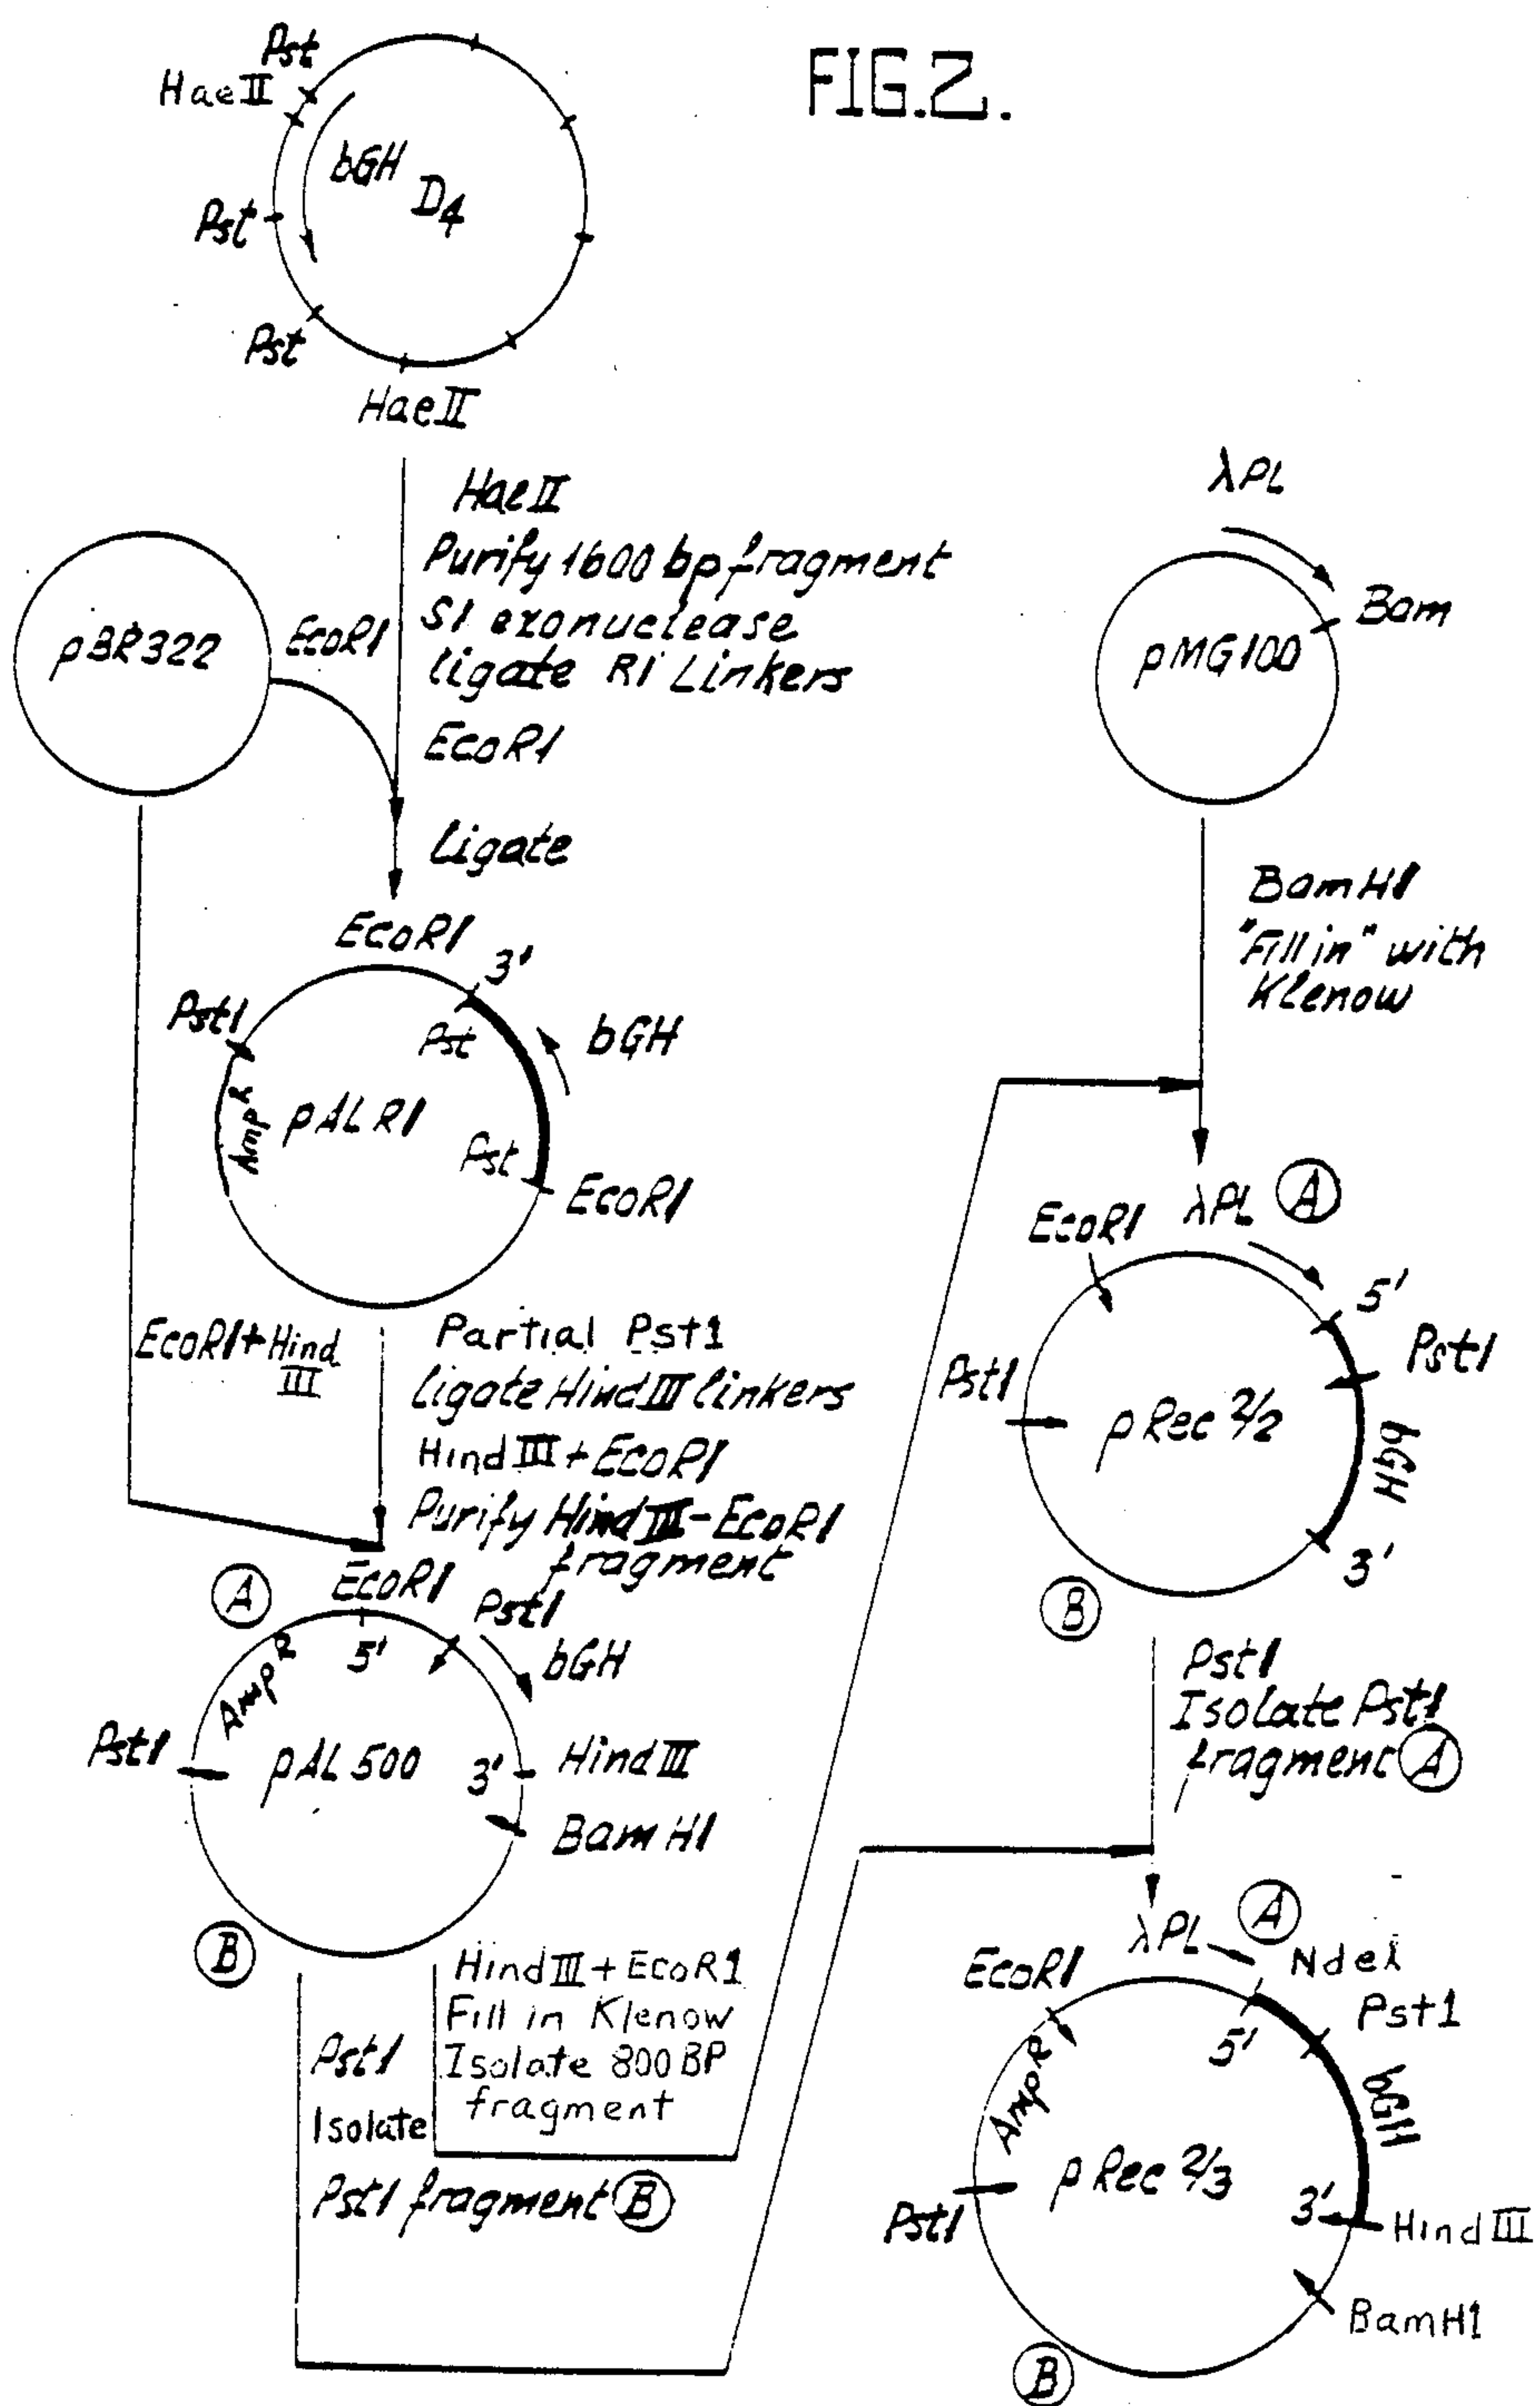 FIG.2.
Pst
HaeII
bGH
D4
Pst
Pst
HaeII
HaeII
Purify 1600 bp fragment
S1 exonuclease
ligate R1 Linkers
EcoR1
pBR322
EcoR1
Ligate
λPL
Bam
pMG100
BamH1
"Fill in" with
Klenow
EcoR1
3'
Pst1
Pst
bGH
Amp R
pALR1
Pst
EcoR1
EcoR1+Hind
III
Partial Pst1
ligate HindIII linkers
HindIII+EcoR1
Purify HindIII-EcoR1
fragment
A
EcoR1
Pst1
5'
bGH
Amp R
Pst1
pAL500
3'
HindIII
BamH1
B
HindIII+EcoR1
Fill in Klenow
Isolate 800 BP
fragment
Pst1
Isolate
Pst1 fragment B
λPL A
EcoR1
5'
Pst1
Pst1
pRec 2/2
bGH
3'
B
Pst1
Isolate Pst1
fragment A
λPL
A
Nde1
EcoR1
Pst1
5'
Amp R
bGH
pRec 2/3
Pst1
3'
HindIII
BamH1
B